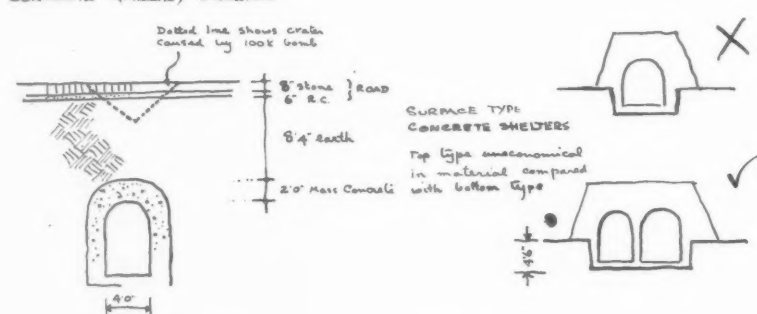 Dotted line shows crater
caused by 100k bomb
8" stone } ROAD
6" R.C.
8'4" earth
2'0" Mass Concrete
4'0"
SURFACE TYPE
CONCRETE SHELTERS
Top type uneconomical
in material compared
with bottom type
4'6"